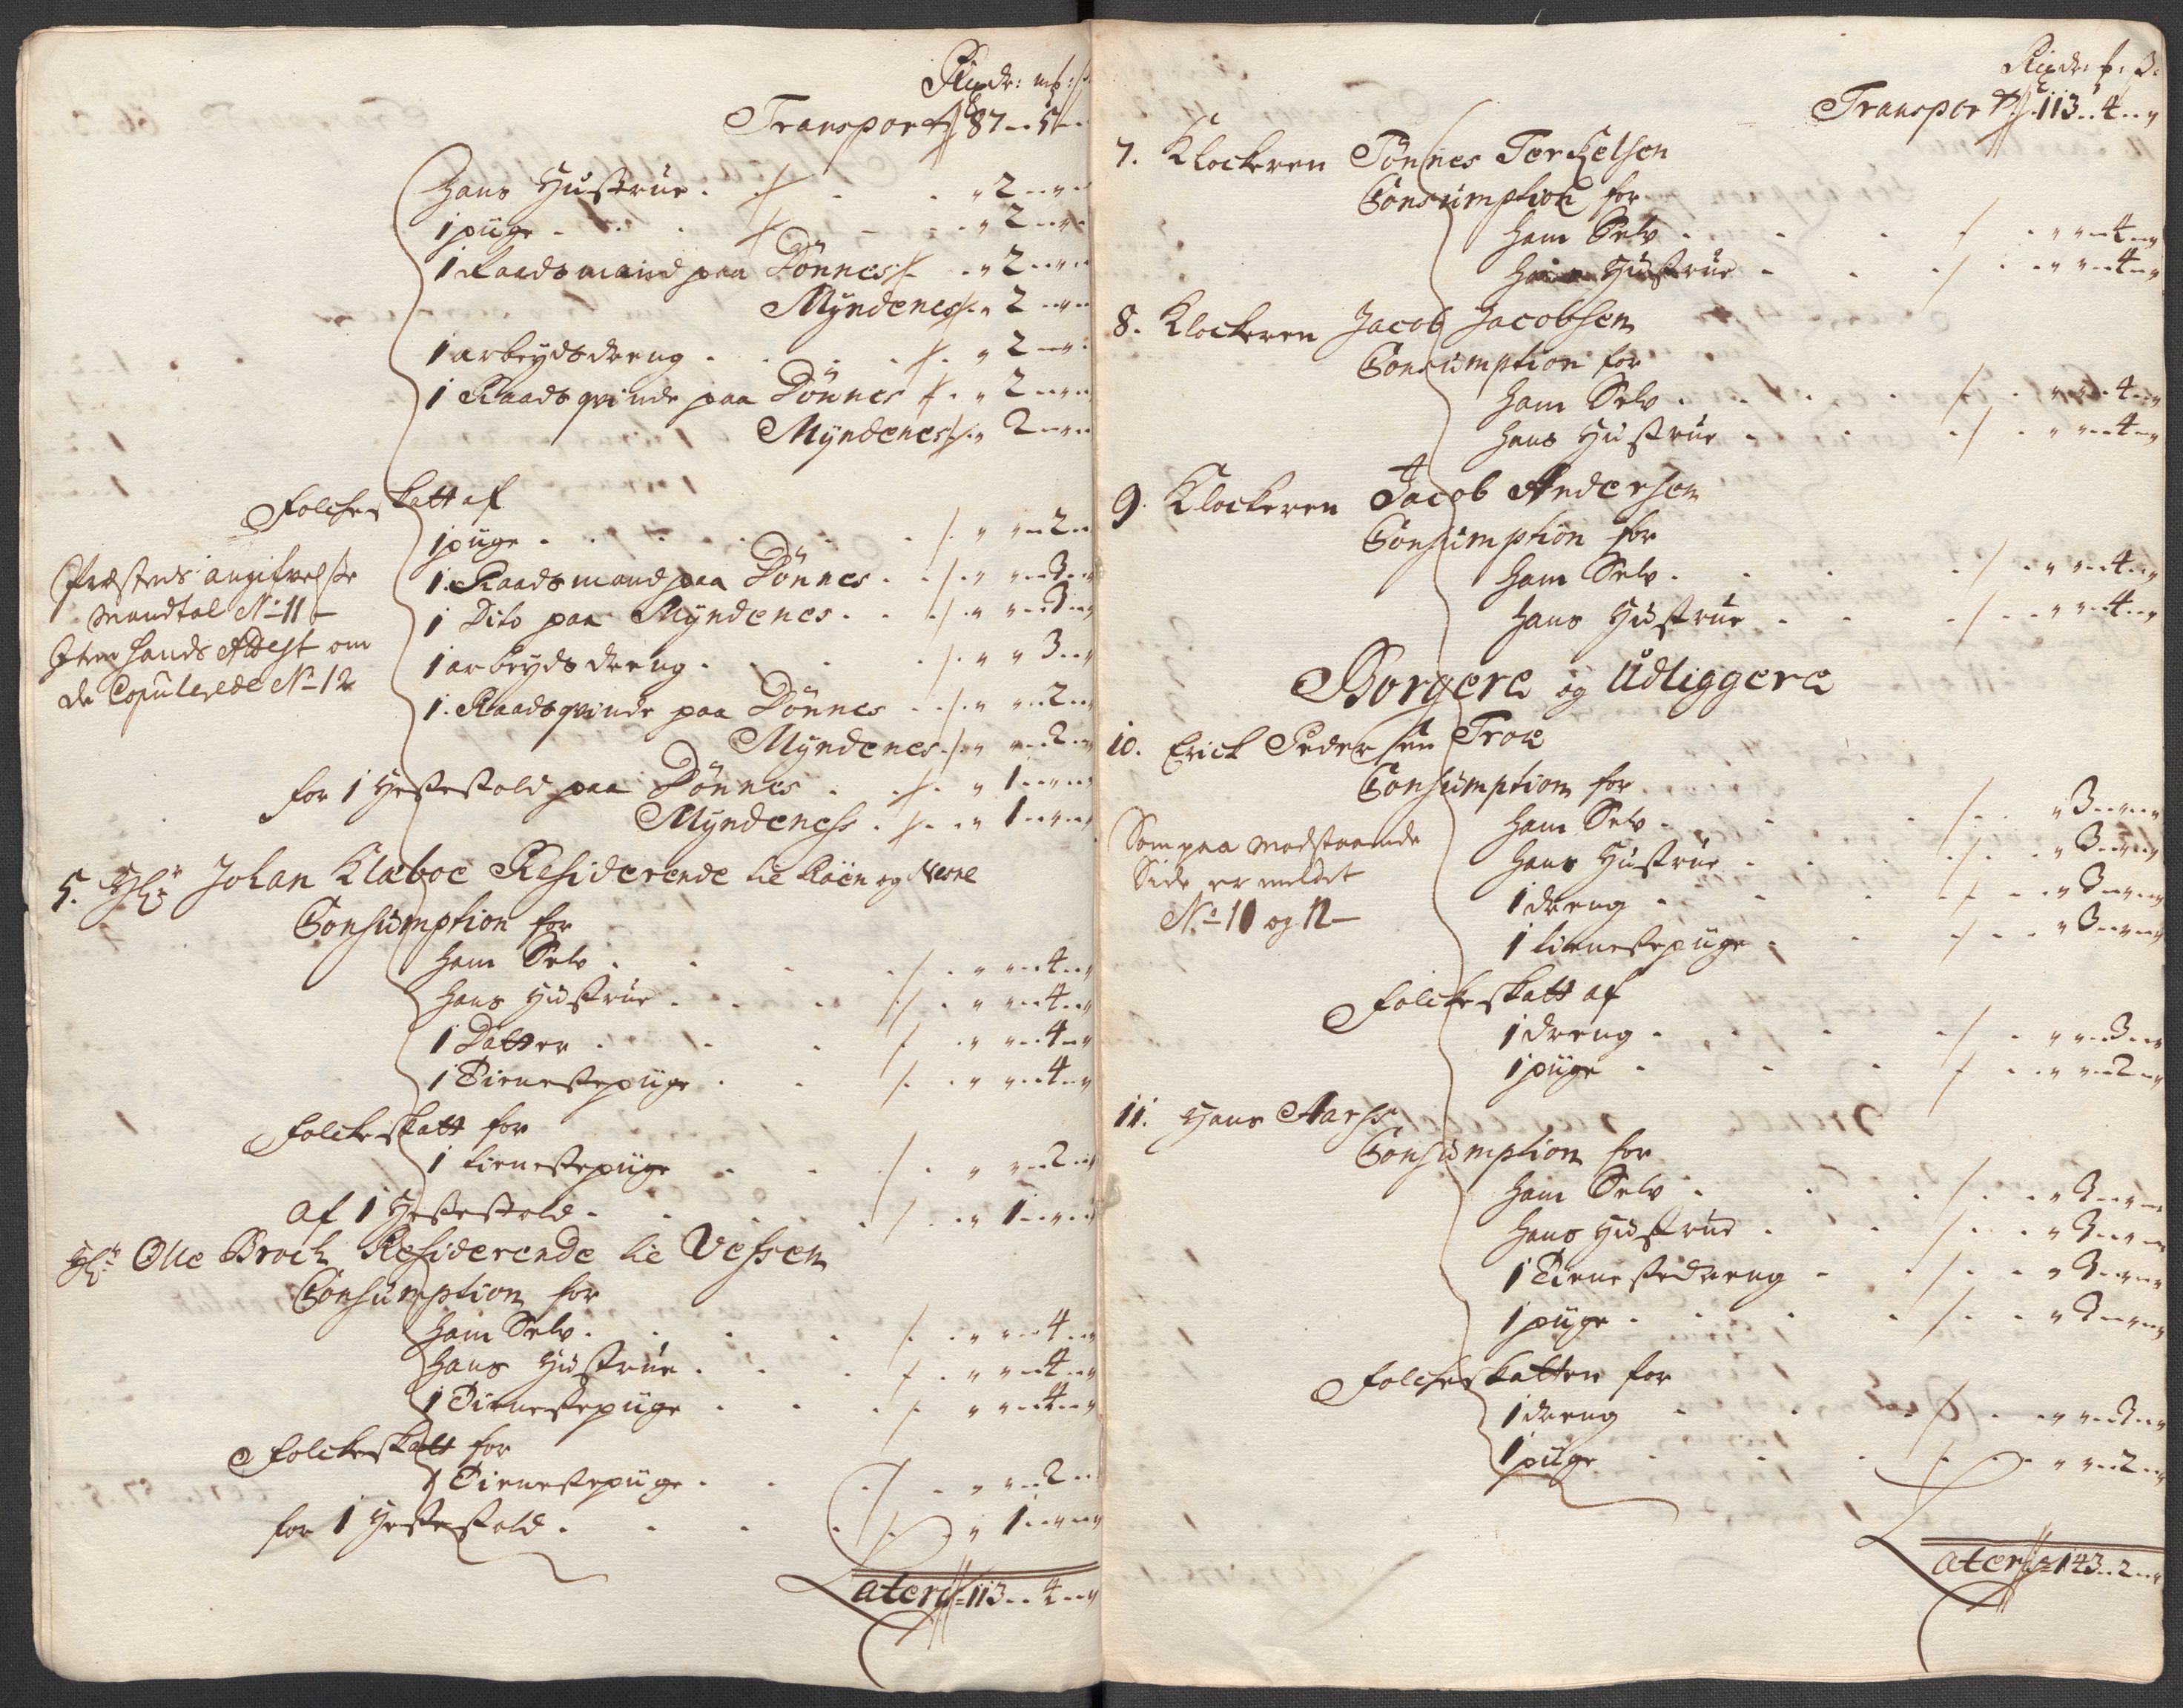 Rixdr: mk: ß
Transport 87 -- 5 --
Hans Hustrue . " 2 -- " --
1 pige - . . " 2 -- " --
1 Raadsmand paa Dönnes . " 2 -- " --
Myndenes . " 2 -- " --
1 arbeydsdreng . . " 2 -- " --
1 Raadsqvinde paa Dönnes . " 2 -- " --
Myndenes . " 2 -- " --
Folcheskatt af
1 pige . . . " " -- 2 --
Præstens angifvelse
Mandtal No 11 -
Item hands Attest om
de Copulerede No 12
1. Raadsmand paa Dönnes . . " " -- 3 --
1 Dito paa Myndenes . . " " -- 3 --
1 arbeyds dreng . . " " 3 -- "
1. Raadsqvinde paa Dönnes . . " " -- 2 --
Myndenes . " " -- 2 -- "
for 1 Hestestold paa Dönnes . . " 1 -- " --
Myndenes . . " 1 -- " --
5. Hr Johan Klæboe Residerende til Röen og Nerne
Consumption for
ham Selv . . . " " -- 4 -- "
hans Hustrue . . . " " -- 4 -- "
1 Datter . . . " " -- 4 -- "
1 Tienestepige . . " " -- 4 -- "
Folckeskatt for
1 tienestepige . . " " -- 2 --
af 1 Hestestold . . . " 1 -- " --
Hr Olle Broch Residerende til Vefsen
Consumption for
ham Selv . . . " " -- 4 -- "
hans Hustrue . . . " " -- 4 -- "
1 Tienestepige . . . " " -- 4 -- "
Folckeskatt for
1 Tienestepige . . " " -- 2 --
for 1 Hestestold . . . " 1 -- " -- "
Lateris 113 -- 4 -- "
Rixdr: mk: ß:
Transport 113 -- 4 -- "
7. Klockeren Tönnes Terchelsen
Consumption for
ham Selv . . . " " -- 4 -- "
Hustrue . . . " " -- 4 -- "
8. Klockeren Jacob Jacobsen
Consumption for
ham Selv . . . " " -- 4 -- "
hans Hustrue . . . " " -- 4 -- "
9. Klockeren Jacob Andersen
Consumption for
ham Selv . . . " " -- 4 -- "
hans Hustrue . . . " " -- 4 -- "
Borgere og Udliggere
10. Erick Pedersen Troe
Consumption for
ham Selv . . . " 3 -- " -- "
Som paa modstaaende
Side er meldet
No 10 og 12 -
hans Hustrue . . . " 3 -- " -- "
1 dreng . . . " 3 -- " -- "
1 tienestepige . . . " 3 -- " -- "
Folckeskatt af
1 dreng . . . " " -- 3 -- "
1 pige . . . " " -- 2 -- "
11. Hans Aarss
Consumption for
ham Selv . . . " 3 -- " -- "
hans Hustrue . . . " 3 -- " -- "
1 Tienestedreng . . . " 3 -- " -- "
1 pige . . . " 3 -- " -- "
Folcheskatten for
1 dreng . . . " " -- 3 -- "
1 pige . . . " " -- 2 -- "
Lateris 143 -- 2 -- "